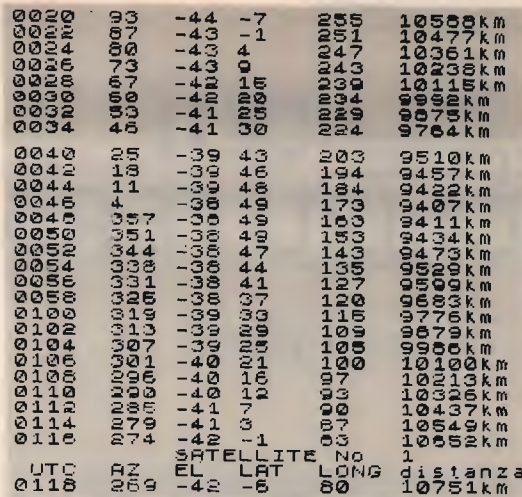 0020 93 -44 -7 255 10588km
0022 87 -43 -1 251 10477km
0024 80 -43 4 247 10361km
0026 73 -43 9 243 10238km
0028 67 -42 15 239 10115km
0030 60 -42 20 234 9992km
0032 53 -41 25 229 9875km
0034 46 -41 30 224 9764km
0040 25 -39 43 203 9510km
0042 18 -39 46 194 9457km
0044 11 -39 48 184 9422km
0046 4 -38 49 173 9407km
0048 357 -38 49 163 9411km
0050 351 -38 49 153 9434km
0052 344 -38 47 143 9473km
0054 338 -38 44 135 9529km
0056 331 -38 41 127 9599km
0058 325 -38 37 120 9683km
0100 319 -39 33 115 9776km
0102 313 -39 29 109 9879km
0104 307 -39 25 105 9986km
0106 301 -40 21 100 10100km
0108 296 -40 16 97 10213km
0110 290 -40 12 93 10326km
0112 285 -41 7 90 10437km
0114 279 -41 3 87 10549km
0116 274 -42 -1 83 10652km
SATELLITE No 1
UTC AZ EL LAT LONG distanza
0118 269 -42 -6 80 10751km